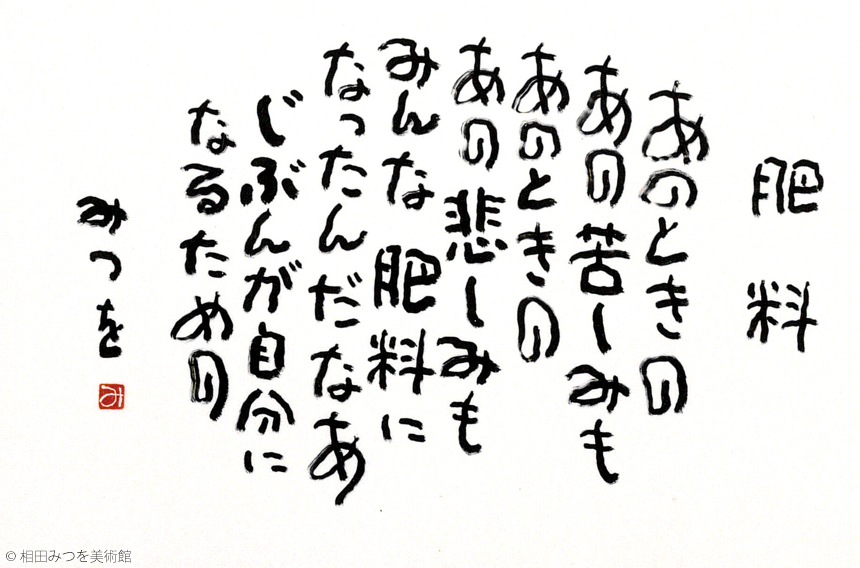 肥料
あのときの
あの苦しみも
あのときの
あの悲しみも
みんな肥料に
なったんだなあ
じぶんが自分に
なるための
みつを
み
© 相田みつを美術館